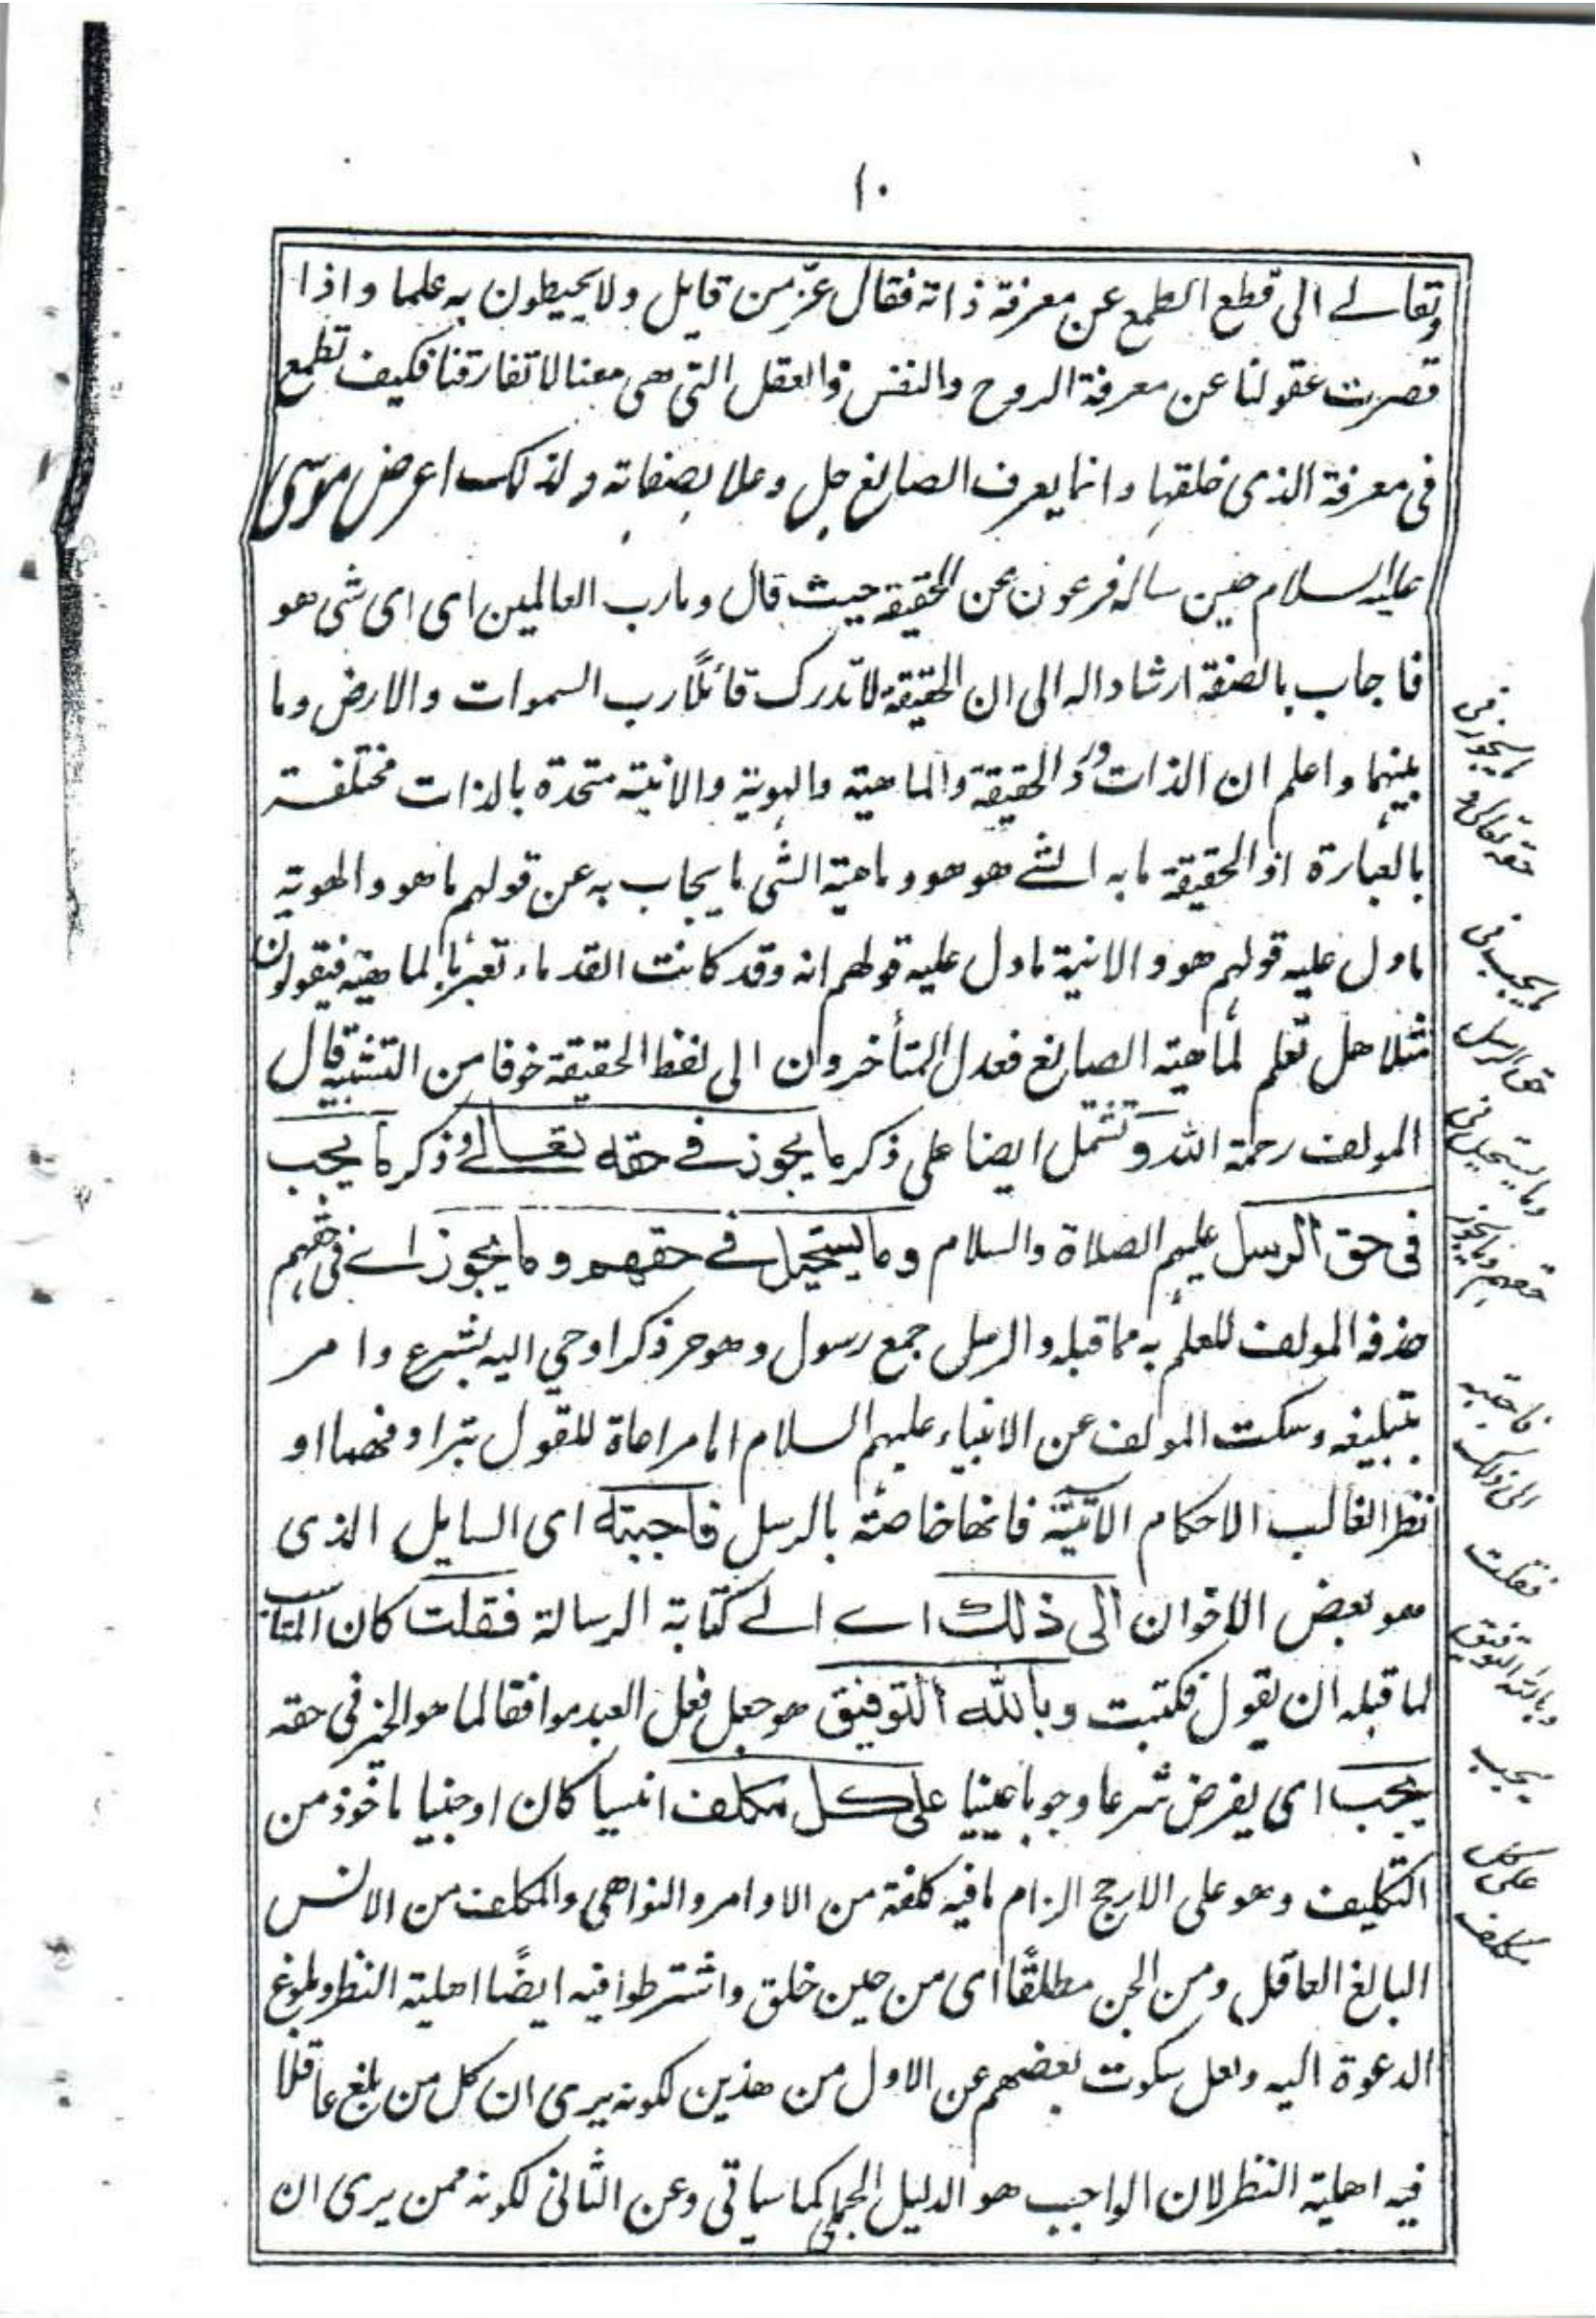 ١٠
وتعالى الى قطع الطمع عن معرفة ذاته فقال عزّ من قايل ولا يحيطون به علما واذا
قصرت عقولنا عن معرفة الروح والنفس والعقل التي هي معنا لا تفارقنا فكيف تطمع
في معرفة الذي خلقها وانما يعرف الصانع جل وعلا بصفاته ولذلك اعرض موسى
عليه السلام حين ساله فرعون عن الحقيقة حيث قال وما رب العالمين اى اى شى هو
فاجاب بالصفة ارشادا له الى ان الحقيقة لا تدرك قائلًا رب السموات والارض وما
بينهما واعلم ان الذات والحقيقة والماهية والهوية والانية متحدة بالذات مختلفة
بالعبارة اذ الحقيقة ما به الشى هو هو وماهية الشى ما يجاب به عن قولهم ما هو والهوية
ما دل عليه قولهم هو والانية ما دل عليه قولهم انه وقد كانت القدماء تعبر بالماهية فيقولون
مثلا هل تعلم لماهية الصانع فعدل المتأخرون الى لفظ الحقيقة خوفا من التشبيه قال
المولف رحمة الله وتشتمل ايضا على ذكر ما يجوز في حقه تعالى وذكر ما يجب
في حق الرسل عليهم الصلاة والسلام وما يستحيل في حقهم وما يجوز اى في حقهم
حذفه المولف للعلم به مما قبله والرسل جمع رسول وهو حر ذكر اوحي اليه بشرع وامر
بتبليغه وسكت المولف عن الانبياء عليهم السلام اما مراعاة للقول بترادفهما او
نظرا لغالب الاحكام الآتية فانها خاصة بالرسل فاجبته اى السايل الذى
هو بعض الاخوان الى ذلك اى الى كتابة الرسالة فقلت كان المناسب
لما قبله ان يقول فكتبت وبالله التوفيق هو جعل فعل العبد موافقا لما هو الخير في حقه
يجب اى يفرض شرعا وجوبا عينيا على كل مكلف انسيا كان او جنيا ماخوذ من
التكليف وهو على الارجح الزام ما فيه كلفة من الاوامر والنواهى والمكلف من الانس
البالغ العاقل ومن الجن مطلقًا اى من حين خلق واشترطوا فيه ايضًا اهلية النظر وبلوغ
الدعوة اليه ولعل سكوت بعضهم عن الاول من هذين لكونه يرى ان كل من بلغ عاقلا
فيه اهلية النظر لان الواجب هو الدليل الجملى كما سياتى وعن الثانى لكونه ممن يرى ان
ما يجوز في
حقه تعالى و
ما يجب في
حق الرسل
وما يستحيل في
حقهم وما يجوز
فاجبته
الى ذلك
فقلت
وبالله التوفيق
يجب
على كل
مكلف